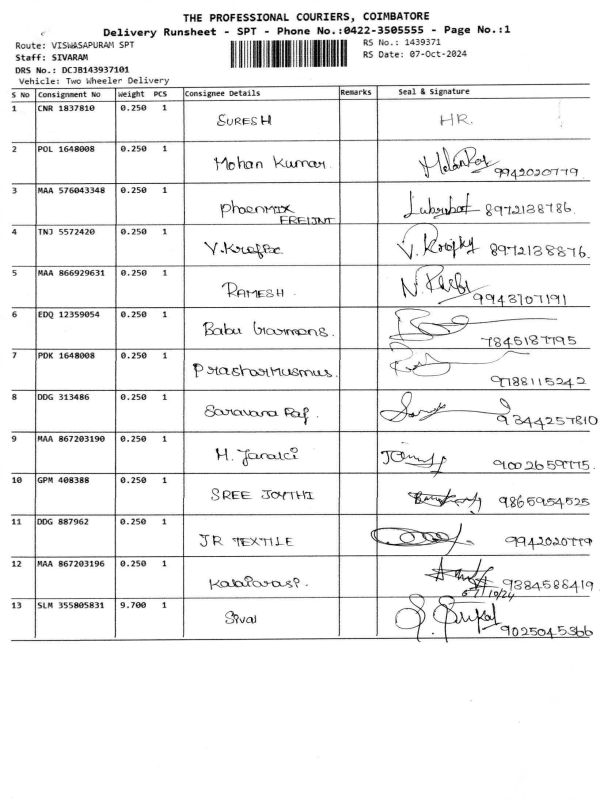 THE PROFESSIONAL COURIERS, COIMBATORE
Delivery Runsheet - SPT - Phone No.:0422-3505555 - Page No.:1
Route: VISWASAPURAM SPT RS No.: 1439371
Staff: SIVARAM RS Date: 07-Oct-2024
DRS No.: DCJB143937101
Vehicle: Two Wheeler Delivery
S No Consignment No Weight PCS Consignee Details Remarks Seal & Signature
1 CNR 1837810 0.250 1 SURESH HR.
2 POL 1648008 0.250 1 Mohan Kumar. 9942020779
3 MAA 576043348 0.250 1 Phoenmix 8972138786.
FREIJNT
4 TNJ 5572420 0.250 1 V. 8972138876.
5 MAA 866929631 0.250 1 RAMESH. 9943707191
6 EDQ 12359054 0.250 1 Babu Garmons. 7845187795
7 PDK 1648008 0.250 1 9788115242
8 DDG 313486 0.250 1 Saravana Raj. 9344257810
9 MAA 867203190 0.250 1 M. Janaki 9002659775.
10 GPM 408388 0.250 1 SREE JOYTHI 9865954525
11 DDG 887962 0.250 1 JR TEXTILE 9942020779
12 MAA 867203196 0.250 1 9384588419
13 SLM 355805831 9.700 1 Sival 9025045366